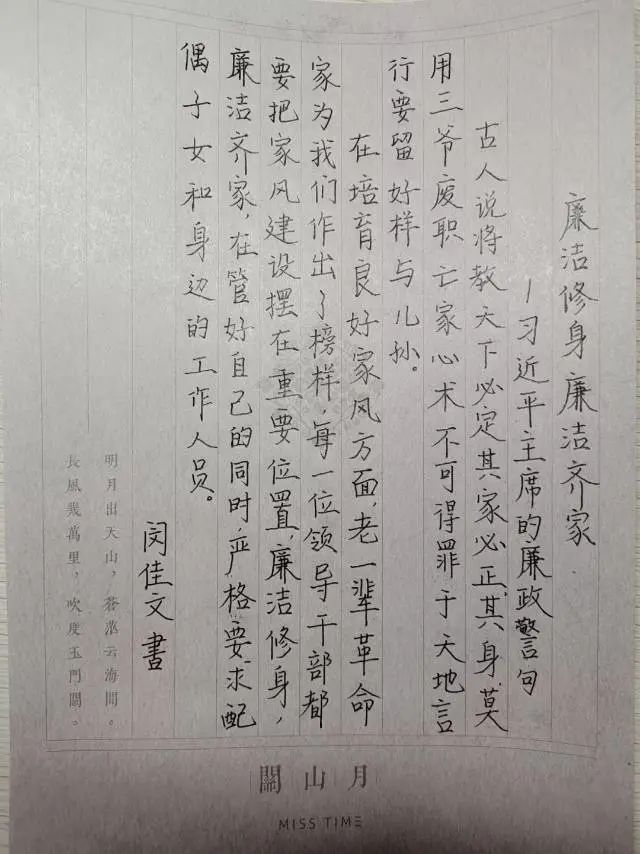 廉洁修身廉洁齐家
一习近平主席的廉政警句
古人说将教天下必定其家必正其身莫
用三爷废职亡家心术不可得罪于天地言
行要留好样与儿孙。
在培育良好家风方面，老一辈革命
家为我们作出了榜样，每一位领导干部都
要把家风建设摆在重要位置，廉洁修身，
廉洁齐家，在管好自己的同时严格要求配
偶子女和身边的工作人员。
闵佳文書
明月出天山，蒼茫云海間。
長風幾萬里，吹度玉門關。
關山月
MISS TIME